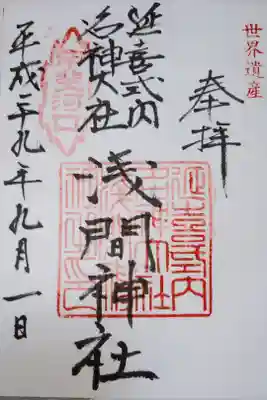 世界遺産
奉拝
延喜式内
名神大社
浅間神社
平成二十九年九月一日
延喜式内